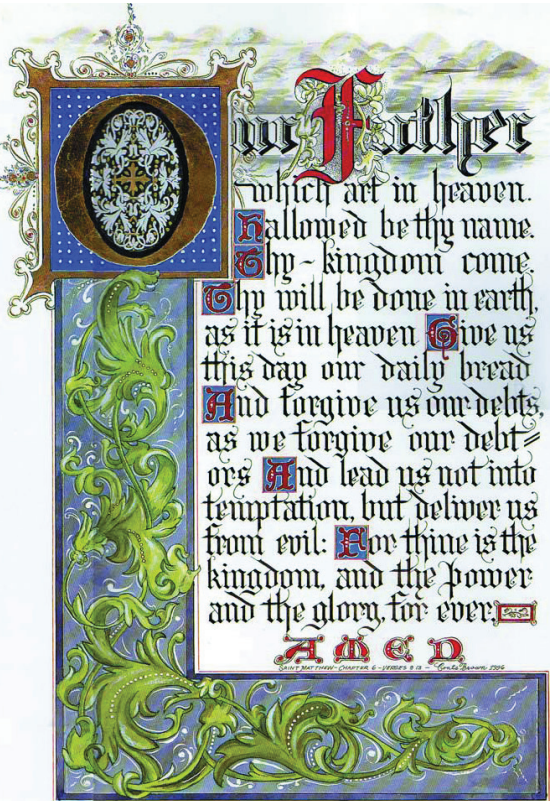 Our Father
which art in heaven.
Hallowed be thy name.
Thy-kingdom come.
Thy will be done in earth,
as it is in heaven Give us
this day our daily bread
And forgive us our debts,
as we forgive our debt=
ors And lead us not into
temptation, but deliver us
from evil: For thine is the
kingdom, and the power
and the glory, for ever.
AMEN
SAINT MATTHEW - CHAPTER 6 - VERSES 9 13 - Brown 1996